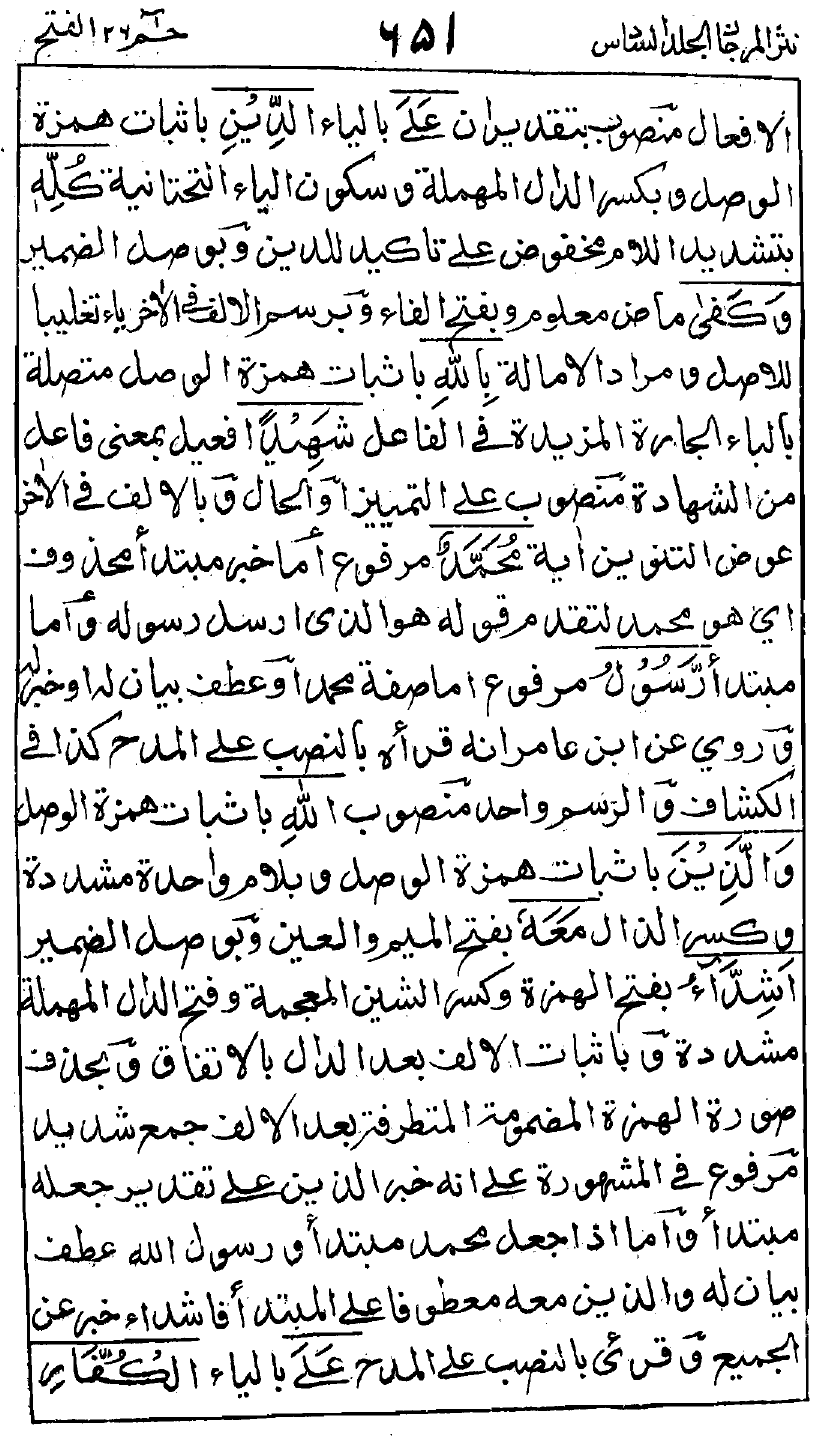 نثر المرجان الجلد السادس ۶۵۱ حٰم ۲۶ الفتح
الافعال منصوب بتقدير ان عَلَى بالياء الدِّيْنِ باثبات همزة
الوصل وبكسر الدال المهملة وسكون الياء التحتانية كُلِّهٖ
بتشديد اللام مخفوض على تاكيد للدين وبوصل الضمير
وَكَفٰى ماض معلوم وبفتح الفاء وبرسم الالف فى الاخر ياء تغليبا
للاصل ومراد الامالة بِاللّٰهِ باثبات همزة الوصل متصلة
بالباء الجارة المزيدة فى الفاعل شَهِيْدًا فعيل بمعنى فاعل
من الشهادة منصوب على التمييز او الحال وبالالف فى الاخر
عوض التنوين اٰية مُحَمَّدٌ مرفوع أما خبر مبتدأ محذوف
اي هو محمد لتقدم قوله هو الذى ارسل رسوله وأما
مبتدأ رَّسُوْلُ مرفوع اما صفة محمد او عطف بيان له او خبر له
وروي عن ابن عامر انه قرأه بالنصب على المدح كذا فى
الكشاف والرسم واحد منصوب اللّٰهِ باثبات همزة الوصل
وَالَّذِيْنَ باثبات همزة الوصل وبلام واحدة مشددة
وكسر الذال مَعَهٗ بفتح الميم والعين وبوصل الضمير
اَشِدَّآءُ بفتح الهمزة وكسر الشين المعجمة وفتح الدال المهملة
مشددة وباثبات الالف بعد الدال بالاتفاق وبحذف
صورة الهمزة المضمومة المتطرفة بعد الالف جمع شديد
مرفوع فى المشهورة على انه خبر الذين على تقدير جعله
مبتدأ وأما اذا جعل محمد مبتدأ ورسول الله عطف
بيان له والذين معه معطوفا على المبتدأ فاشداء خبر عن
الجميع وقرئ بالنصب على المدح عَلَى بالياء الْكُفَّارِ